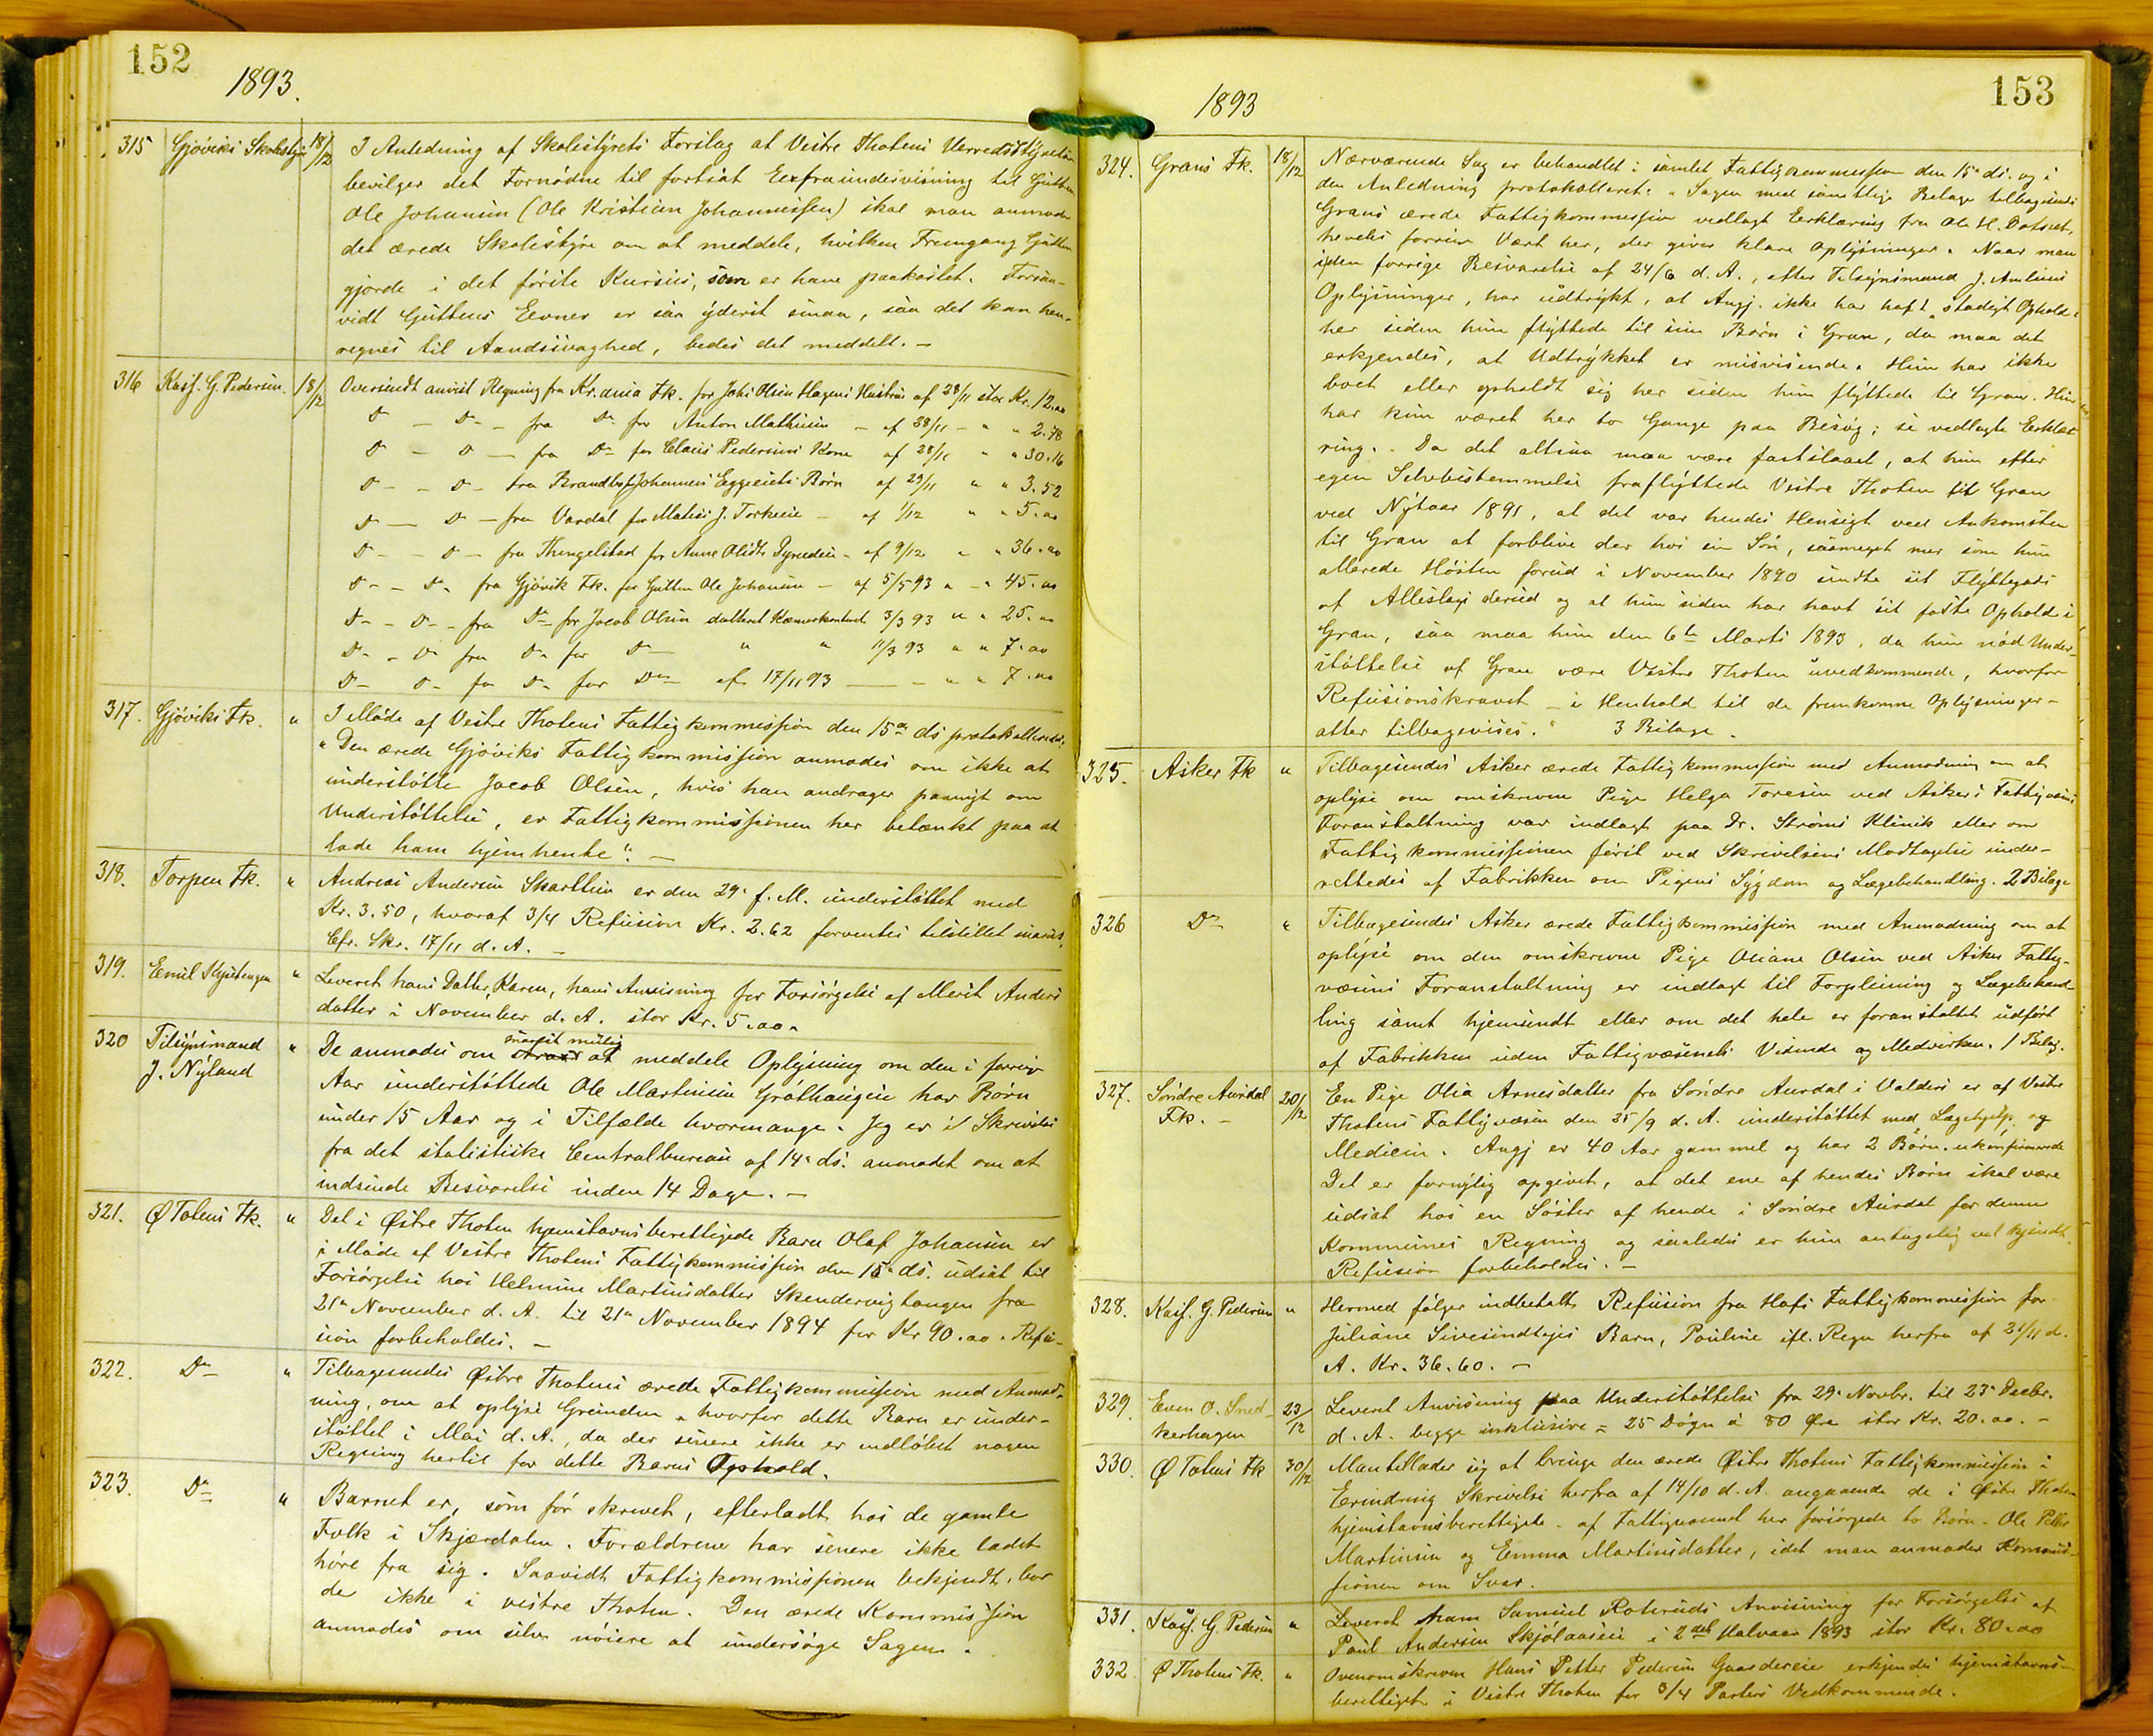 152
1893.
315 Gjøviks Skolestyre 18/12 I Anledning af Skolestyrets Forslag at Vestre Thotens Herredsstyrelse
bevilger det Fornødne til fortsat Extraundervisning til Gutten
Ole Johansen (Ole Kristian Johannessen) skal man anmode
det ærede Skolestyre om at meddele, hvilken Fremgang Gutten
gjorde i det første Kursus, som er ham paakostet. Forsaa-
vidt Guttens Evner er saa yderst smaa, saa det kan hen-
regnes til Aandssvaghed, bedes det meddelt. —
316 Kass. G. Pedersen. 18/12 Oversendt anvist Regning fra Kr.ania Fk. for Johs Olsen Hagens Hustru af 28/11 stor Kr. 12.00
D — D — fra D for Anton Mathisen — af 28/11 — " " 2.78
D — D — fra D for Claus Pedersens Kone af 28/11 " " 30.16
D — D — fra Brandbu f Johannes Eggeiets Børn af 29/11 " " 3.52
D — D — fra Vardal for Mathis J. Torkeie — af 1/12 " " 5.00
D — D — fra Thingelstad for Anne Olidt — af 9/12 " " 36.00
D — D fra Gjøvik Fk. for Gutten Ole Johansen — af 5/5 93 " " 45.00
D — D — fra D for Jacob Olsen datteret Kæmnerkontoret 3/3 93 " " 25.00
D — D fra D for D — " " 11/3 93 " " 7.00
D — D fra D for D — af 17/11 93 — " " 7.00
317. Gjøviks Fk. " I Møde af Vestre Thotens Fattigkommission den 15de ds protokolleret:
"Den ærede Gjøviks Fattigkommission anmodes om ikke at
understøtte Jacob Olsen, hvis han andrager paanyt om
Understøttelse, er Fattigkommissionen her betænkt paa at
lade ham hjemhente". —
318. Torpen Fk. " Andreas Andersen Skartlien er den 29. f. M. understøttet med
Kr. 3.50, hvoraf 3/4 Refusion Kr. 2.62 forventes tilstillet snarest.
Cfr. Skr. 17/11 d. A. —
319. Emil " Leveret hans Datter, Karen, hans Anvisning for Forsørgelse af Merit Anders
datter i November d. A. stor Kr. 5.00.
320 Tilsynsmand " De anmodes om snarest mulig at meddele Oplysning om den i forrige
J. Nyland Aar understøttede Ole Martinsen Gråthaugen har Børn
under 15 Aar og i Tilfælde hvormange. Jeg er i Skrivelse
fra det statistiske Centralbureau af 14. ds. anmodet om at
indsende Besvarelse inden 14 Dage. —
321. Ø Totens Fk. " Det i Østre Thoten hjemstavnsberettigede Barn Olaf Johansen er
i Møde af Vestre Thotens Fattigkommission den 15. ds. udsat til
Forsørgelse hos Helmine Martinsdatter Skendervigtangen fra
21. November d. A. til 21. November 1894 for Kr 90.00. Refu-
sion forbeholdes. —
322. D " Tilbagesendes Østre Thotens ærede Fattigkommission med Anmod-
ning, om at oplyse Grunden, hvorfor dette Barn er under-
støttet i Mai d. A., da der senere ikke er indløbet nogen
Regning hertil for dette Barns Ophold.
323. D " Barnet er, som før skrevet, efterladt hos de gamle
Folk i Skjærdalen. Forældrene har senere ikke ladet
høre fra sig. Saavidt Fattigkommissionen bekjendt, bor
de ikke i vestre Thoten. Den ærede Kommission
anmodes om selv nøiere at undersøge Sagen.
153
1893
324. Grans Fk. 18/12 Nærværende Sag er behandlet i samlet Fattigkommission den 15. ds. og i
den Anledning protokolleret: "Sagen med samtlige Bilage tilbagesendes
Grans ærede Fattigkommission vedlagt Erklæring fra Ole H.
hendes forrige Vært her, der giver klare Oplysninger. Naar man
i den forrige Besvarelse af 24/6 d. A., efter Tilsynsmand J. Amliens
Oplysninger, har udtrykt, at Angj. ikke har haft "stadigt Ophold"
her siden hun flyttede til sine Børn i Gran, da maa det
erkjendes, at Udtrykket er misvisende. Hun har ikke
boet eller opholdt sig her siden hun flyttede til Gran. Hun
har kun været her to Gange paa Besøg; se vedlagte Erklæ-
ring. Da det altsaa maa være fastslaaet, at hun efter
egen Selvbestemmelse fraflyttede Vestre Thoten til Gran
ved Nytaar 1891, at det var hendes Hensigt ved Ankomsten
til Gran at forblive der hos sin Søn, saameget mer som hun
allerede Høsten forud i November 1890 sendte sit Flyttegods
af Alleslags derud og at hun siden har havt sit faste Ophold i
Gran, saa maa hun den 6te Marts 1893, da hun nød Under-
støttelse af Gran være Vestre Thoten uvedkommende, hvorfor
Refusionskravet — i Henhold til de fremkomne Oplysninger —
atter tilbagevises." 3 Bilage.
325. Asker Fk " Tilbagesendes Asker ærede Fattigkommission med Anmodning om at
oplyse om omskrevne Pige Helga Toresen ved Askers Fattigvæsens
Foranstaltning var indlagt paa Dr. Strøms Klinik eller om
Fattigkommissionen først ved Skrivelsens Modtagelse under-
rettedes af Fabrikken om Pigens Sygdom og Lægebehandling. 2 Bilage
326 D " Tilbagesendes Asker ærede Fattigkommission med Anmodning om at
oplyse om den omskrevne Pige Oliane Olsen ved Asker Fattig-
væsens Foranstaltning er indlagt til Forpleining og Lægebehand-
ling samt hjemsendt eller om det hele er foranstaltet udført
af Fabrikken uden Fattigvæsenets Vidende og Medvirken. 1 Bilag.
327. Søndre Aurdal 20/12 En Pige Olia Arnesdatter fra Søndre Aurdal i Valders er af Vestre
Fk. — Thotens Fattigvæsen den 25/9 d. A. understøttet med Lægehjelp og
Medicin. Angj er 40 Aar gammel og har 2 Børn ukonfirmerede
Det er fornylig opgivet, at det ene af hendes Børn skal være
udsat hos en Søster af hende i Søndre Aurdal for denne
Kommunes Regning og saaledes er hun antagelig vel kjendt.
Refusion forbeholdes. —
328. Kass. G. Pedersen " Hermed følger indbetalt Refusion fra Hofs Fattigkommission for
Juliane Sivesindtajes Barn, Pauline ifl. Regn herfra af 21/11 d.
A. Kr. 36.60. —
329. Even O. Sned- 23/12 Leveret Anvisning paa Understøttelse fra 29. Novbr. til 23. Decbr.
kerhagen d. A. begge inklusive = 25 Døgn à 80 Øre stor Kr. 20.00. —
330. Ø Totens Fk 30/12 Man tillader sig at bringe den ærede Østre Thotens Fattigkommission i
Erindring Skrivelse herfra af 14/10 d. A. angaaende de i Østre Thoten
hjemstavnsberettigede af Fattigvæsenet her forsørgede to Børn Ole Petter
Martinsen og Emma Martinsdatter, idet man anmoder Kommis-
sionen om Svar.
331. Kass. G. Pedersen " Leveret ham Samuel Roteruds Anvisning for Forsørgelse af
Paul Andersen Skjølaasen i 2det Halvaar 1893 stor Kr. 80.00
332 Ø Thotens Fk. " Ovenomskrevne Hans Petter Pedersen Gaardereie erkjendes hjemstavns-
berettiget i Vestre Thoten for 3/4 Parters Vedkommende.